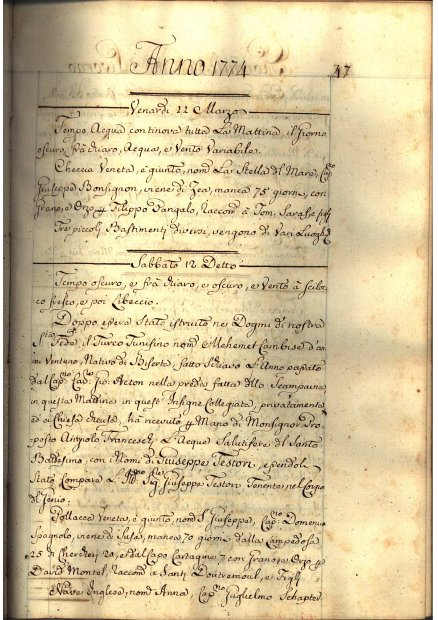 Anno 1774
47
Venardi 11 Marzo
Tempo Acqua continova tutta La Mattina, il Giorno
oscuro, frà chiaro, Acqua, e Vento Variabile.
Checcia Veneta, è giunto, nomᵃ La Stella del Mare, Capⁿᵒ
Giuseppe Bonsignon, viene di Zea, manca 75 giorni, con
Grano, e Orzo Filippo Pangalo, Raccomᵈ à Tom. Sarasse
Tre piccoli Bastimenti diversi, vengono di Varj Luoghi
Sabbato 12 Detto
Tempo oscuro, e frà chiaro, e oscuro, e Vento à Sciloc
co fresco, e poi Libeccio.
Doppo essere Stato istruito nei Dogmi di nostra
Sᵗᵃ Fede, il Turco Tunisino nomᵒ Mehemet Cambise d'an
ni Ventuno, Nativo di Biserta, fatto Schiavo L'Anno passato
dal Capⁿᵒ Cavᵉ Gio: Acton nella preda fatta dello Scampavia
in questa Mattina in quest' Insigne Collegiata, privatamente
à Chiesa chiusa, hà ricevuto Mano di Monsignor Pro
posto Angiolo Franceschi, L'Acque Salutifere del Santo
Battesimo, con i Nomi di Giuseppe Testori, essendoli
Stato Compare L' Sigʳ Giuseppe Testori Tenente nel Corpo
del Genio.
Pollacca Veneta, è giunto, nomᵃ S. Giuseppe, Capⁿᵒ Domenico
Spagnolo, viene di Susa, manca 70 giorni, dalla Lampedosa
25 di Chercheri 20, e dal Capo Cartagine 7 con Grano, e Orzo
David Montel, Raccomᵈ à Santi Doutremoul, e Figlj
Nave Inglese, nomᵃ Anna, Capⁿᵒ Guglielmo Schapter